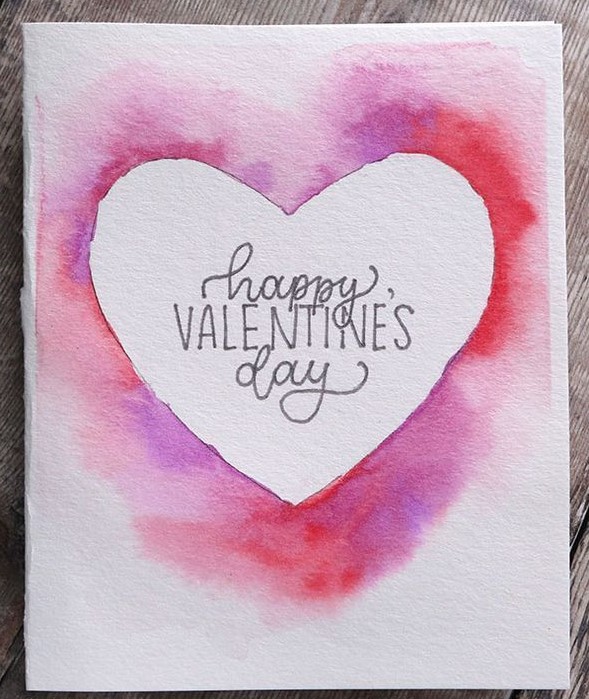 happy
VALENTINE'S
day